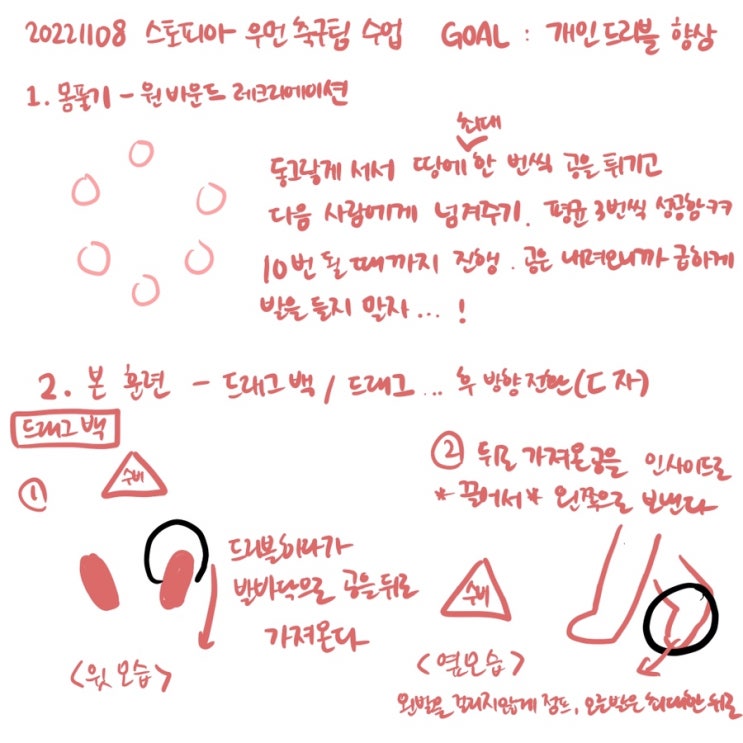 20221108 스토피아 우먼 축구팀 수업 GOAL : 개인 드리블 향상
1. 몸풀기 - 원바운드 레크리에이션
최대
동그랗게 서서 땅에 한 번씩 공을 튀기고
다음 사람에게 넘겨주기. 평균 3번씩 성공함ㅋㅋ
10번 될 때까지 진행. 공은 내려오니까 급하게
발을 들지 말자... !
2. 본 훈련 - 드래그 백 / 드래그 ... 후 방향 전환 (ㄷ자)
드래그 백
①
수비
드리블하다가
발바닥으로 공을 뒤로
가져온다
<윗모습>
② 뒤로 가져온 공을 인사이드로
*끌어서* 왼쪽으로 보낸다
수비
<옆모습>
왼발을 걸리지않게 점프, 오른발은 최대한 뒤로